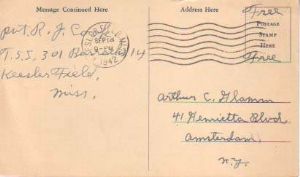 Message Continued Here
Pvt. R. J.
T.S.S. 301
14
Keesler Field,
Miss.
1942
Address Here
Free
POSTAGE
STAMP
Here
Free
Arthur C. Glamm
41 Henrietta Blvd.
Amsterdam,
N.Y.